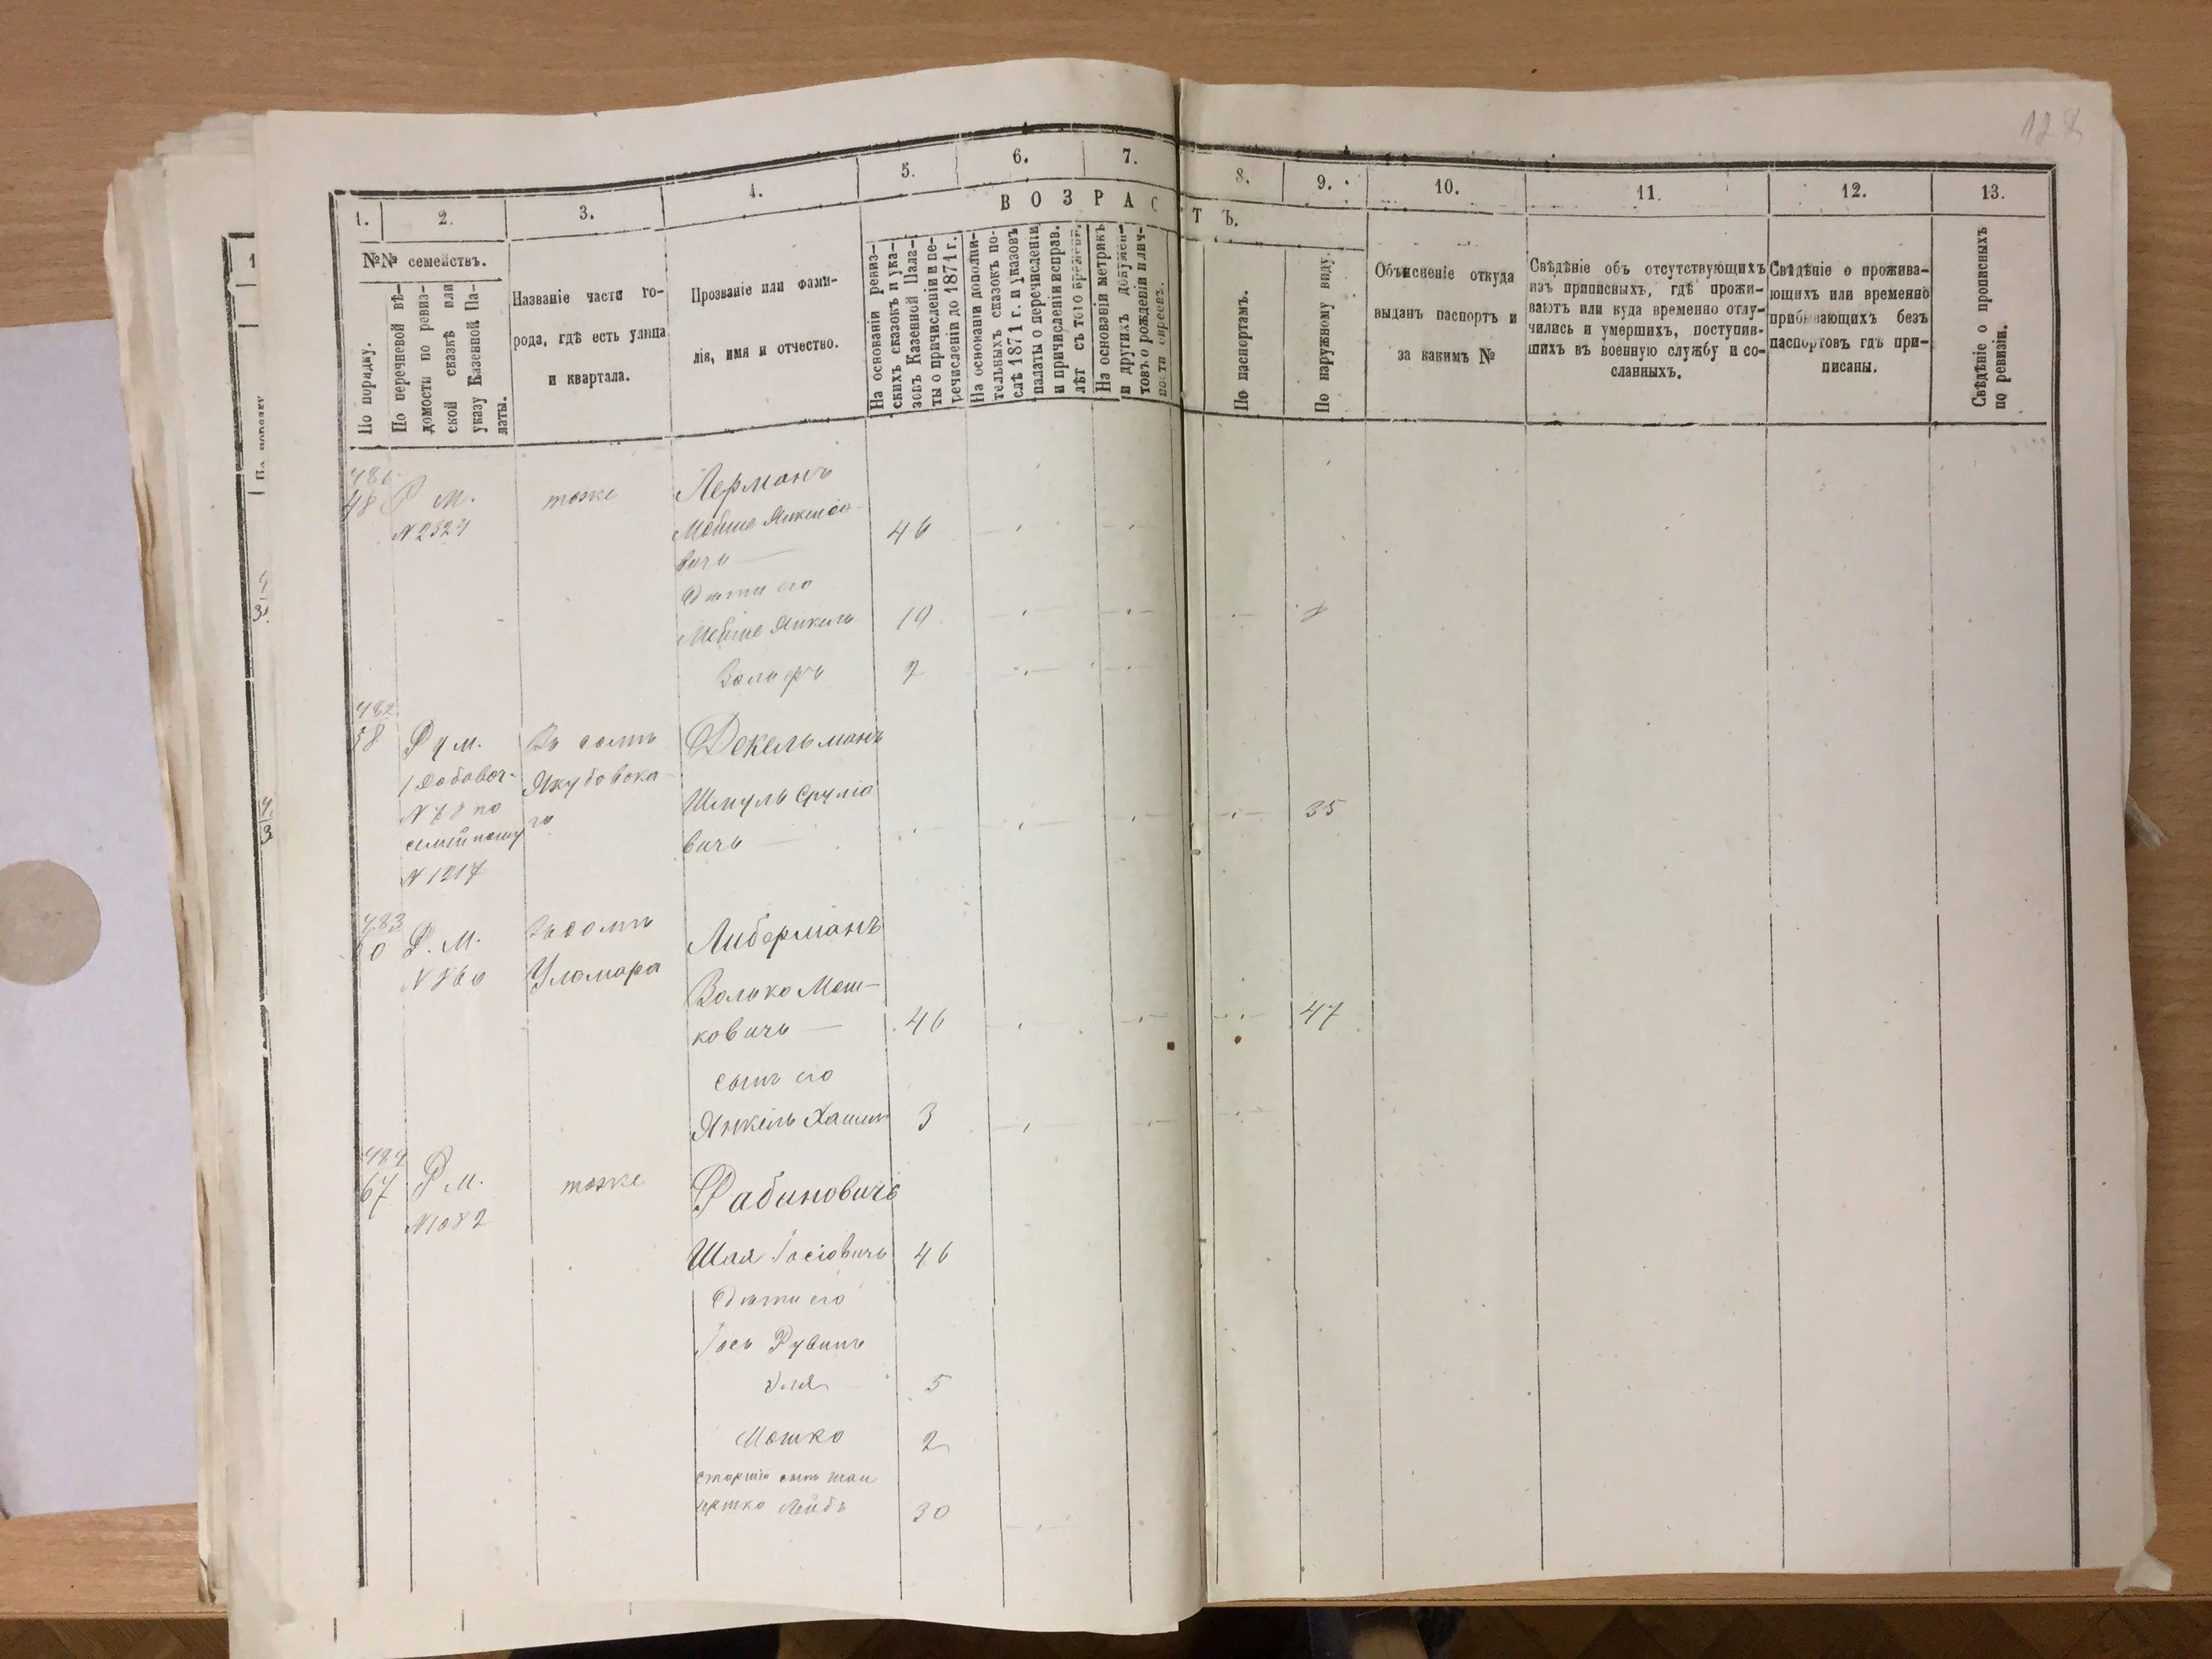 128
1. 2. 3. 4. 5. 6. 7. 8. 9. 10. 11. 12. 13.
ВОЗРАСТЪ.
№№ семействъ.
По порядку.
По перечневой вѣ-
домости по ревиз-
ской сказкѣ или
указу Казенной Па-
латы.
Названіе части го-
рода, гдѣ есть улица
и квартала.
Прозваніе или фами-
лія, имя и отчество.
На основаніи ревиз-
скихъ сказокъ и ука-
зовъ Казенной Пала-
ты о причисленіи и пе-
речисленіи до 1871 г.
На основаніи дополни-
тельныхъ сказокъ по-
слѣ 1871 г. и указовъ
палаты о перечисленіи
и причисленіи исправ.
лѣт съ того времени.
На основаніи метрикъ
и другихъ докумен-
товъ о рожденіи и лич-
ности евреевъ.
По паспортамъ.
По наружному виду.
Объясненіе откуда
выданъ паспортъ и
за какимъ №
Свѣдѣніе объ отсутствующихъ
изъ приписныхъ, гдѣ прожи-
ваютъ или куда временно отлу-
чились и умершихъ, поступив-
шихъ въ военную службу и со-
сланныхъ.
Свѣдѣніе о прожива-
ющихъ или временно
прибывающихъ безъ
паспортовъ гдѣ при-
писаны.
Свѣдѣніе о прописныхъ
по ревизіи.
481
48 Р М. тоже Лерманъ
N 2527 46
вичь
Дѣти его
Мойше Янкель 19
Вольфъ 2
482
58 Рум. Въ домѣ Декельманъ
Якубовска-
N 78 по го Шмуль Сруліо
семейному вичь 35
N 1217
483
60 Р. М. Въ домѣ Либерманъ
N 860 Волько Мош-
ковичь 46 47
сынъ его
Янкель Хаимъ 3
484
67 Р М. тоже Рабиновичь
N 1082
Шая Іосіовичь 46
Дѣти его
Іось Рувинъ
5
Мошко 2
старшій сынъ Шаи
Лейбъ 30